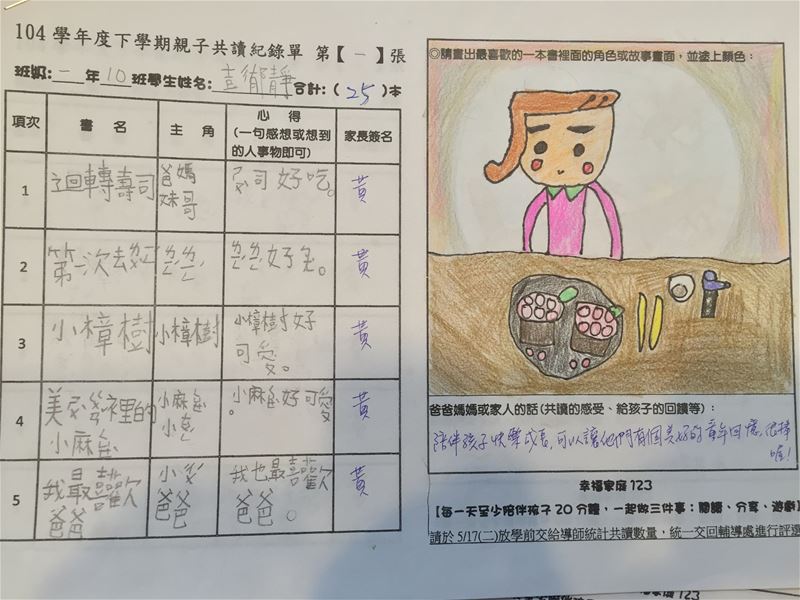 104 學年度下學期親子共讀紀錄單 第【 一 】張
班級: 一 年 10 班學生姓名: 合計:( 25 )本
項次 書 名 主 角 心 得 (一句感想或想到的人事物即可) 家長簽名
1 迴轉壽司 爸媽妹哥 壽司好吃。 黃
2 第一次去 黃
3 小樟樹 小樟樹 小樟樹好可愛。 黃
4 裡的小麻 小麻 小麻 好可愛。 黃
5 我最喜歡爸爸 小 爸爸 我也最喜歡爸爸。 黃
◎請畫出最喜歡的一本書裡面的角色或故事畫面,並塗上顏色:
爸爸媽媽或家人的話(共讀的感受、給孩子的回饋等):
陪伴孩子快樂成長,可以讓他們有個美好的童年回憶,很棒
喔!
幸福家庭 123
【每一天至少陪伴孩子 20 分鐘,一起做三件事:閱讀、分享、遊戲】
請於 5/17(二)放學前交給導師統計共讀數量,統一交回輔導處進行評選